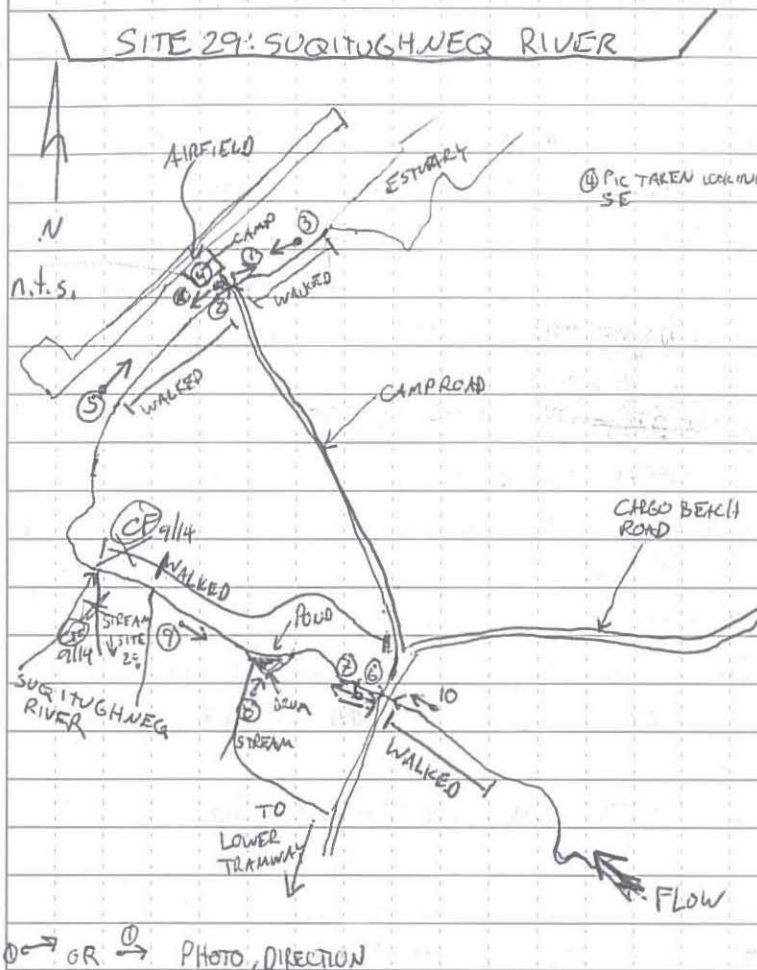 SITE 29: SUQITUGHNEQ RIVER
N
n.t.s.
AIRFIELD
CAMP
ESTUARY
④ PIC TAKEN LOOKING
SE
③
④
①
②
WALKED
WALKED
⑤
CAMP ROAD
CARGO BEACH
ROAD
CF 9/14
WALKED
9/14
STREAM
SITE
⑨
POND
DRUM
⑧
STREAM
SUQITUGHNEQ
RIVER
⑦ ⑥
10
WALKED
TO
LOWER
TRAMWAY
FLOW
① OR ① PHOTO, DIRECTION